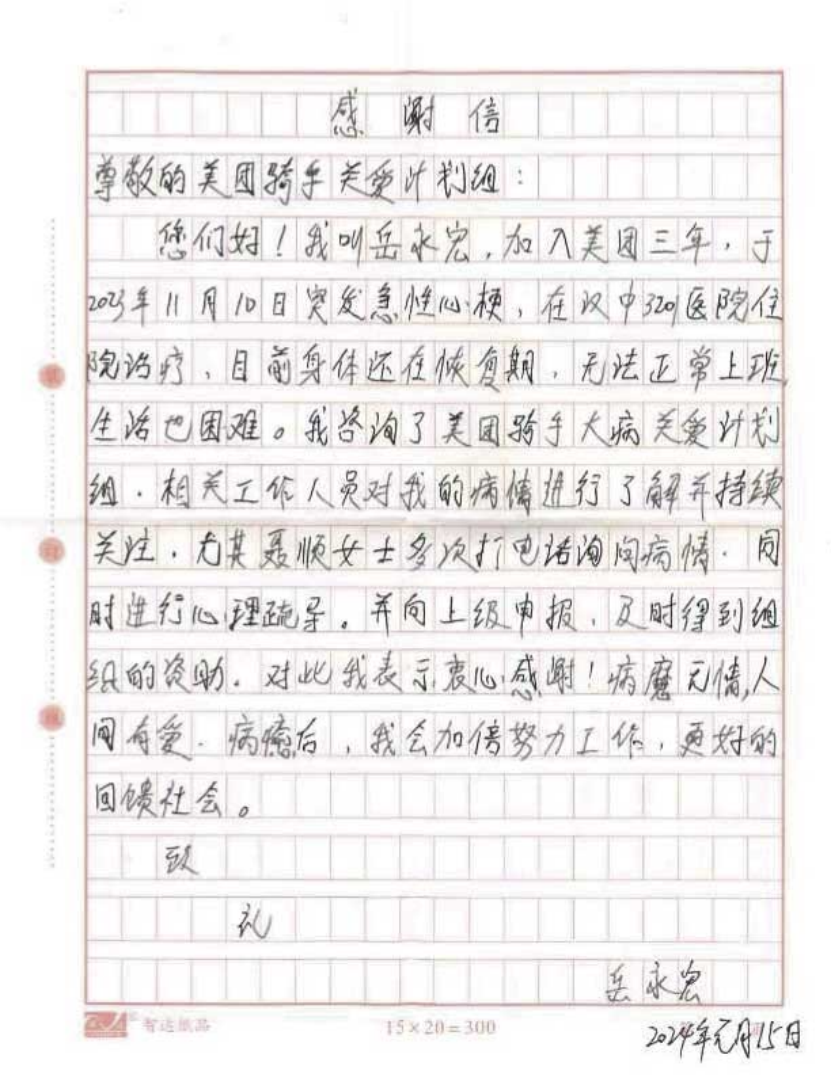 感谢信
尊敬的美团骑手关爱计划组：
您们好！我叫岳永宏，加入美团三年，于
2023年11月10日突发急性心梗，在汉中3201医院住
院治疗、目前身体还在恢复期，无法正常上班，
生活也困难。我咨询了美团骑手大病关爱计划
组．相关工作人员对我的病情进行了解并持续
关注．尤其聂顺女士多次打电话询问病情．同
时进行心理疏导。并向上级申报、及时得到组
织的资助．对此我表示衷心感谢！病魔无情，人
间有爱．病癒后，我会加倍努力工作，更好的
回馈社会。
致
礼
岳永宏
智达纸品 15×20=300
2024年元月15日